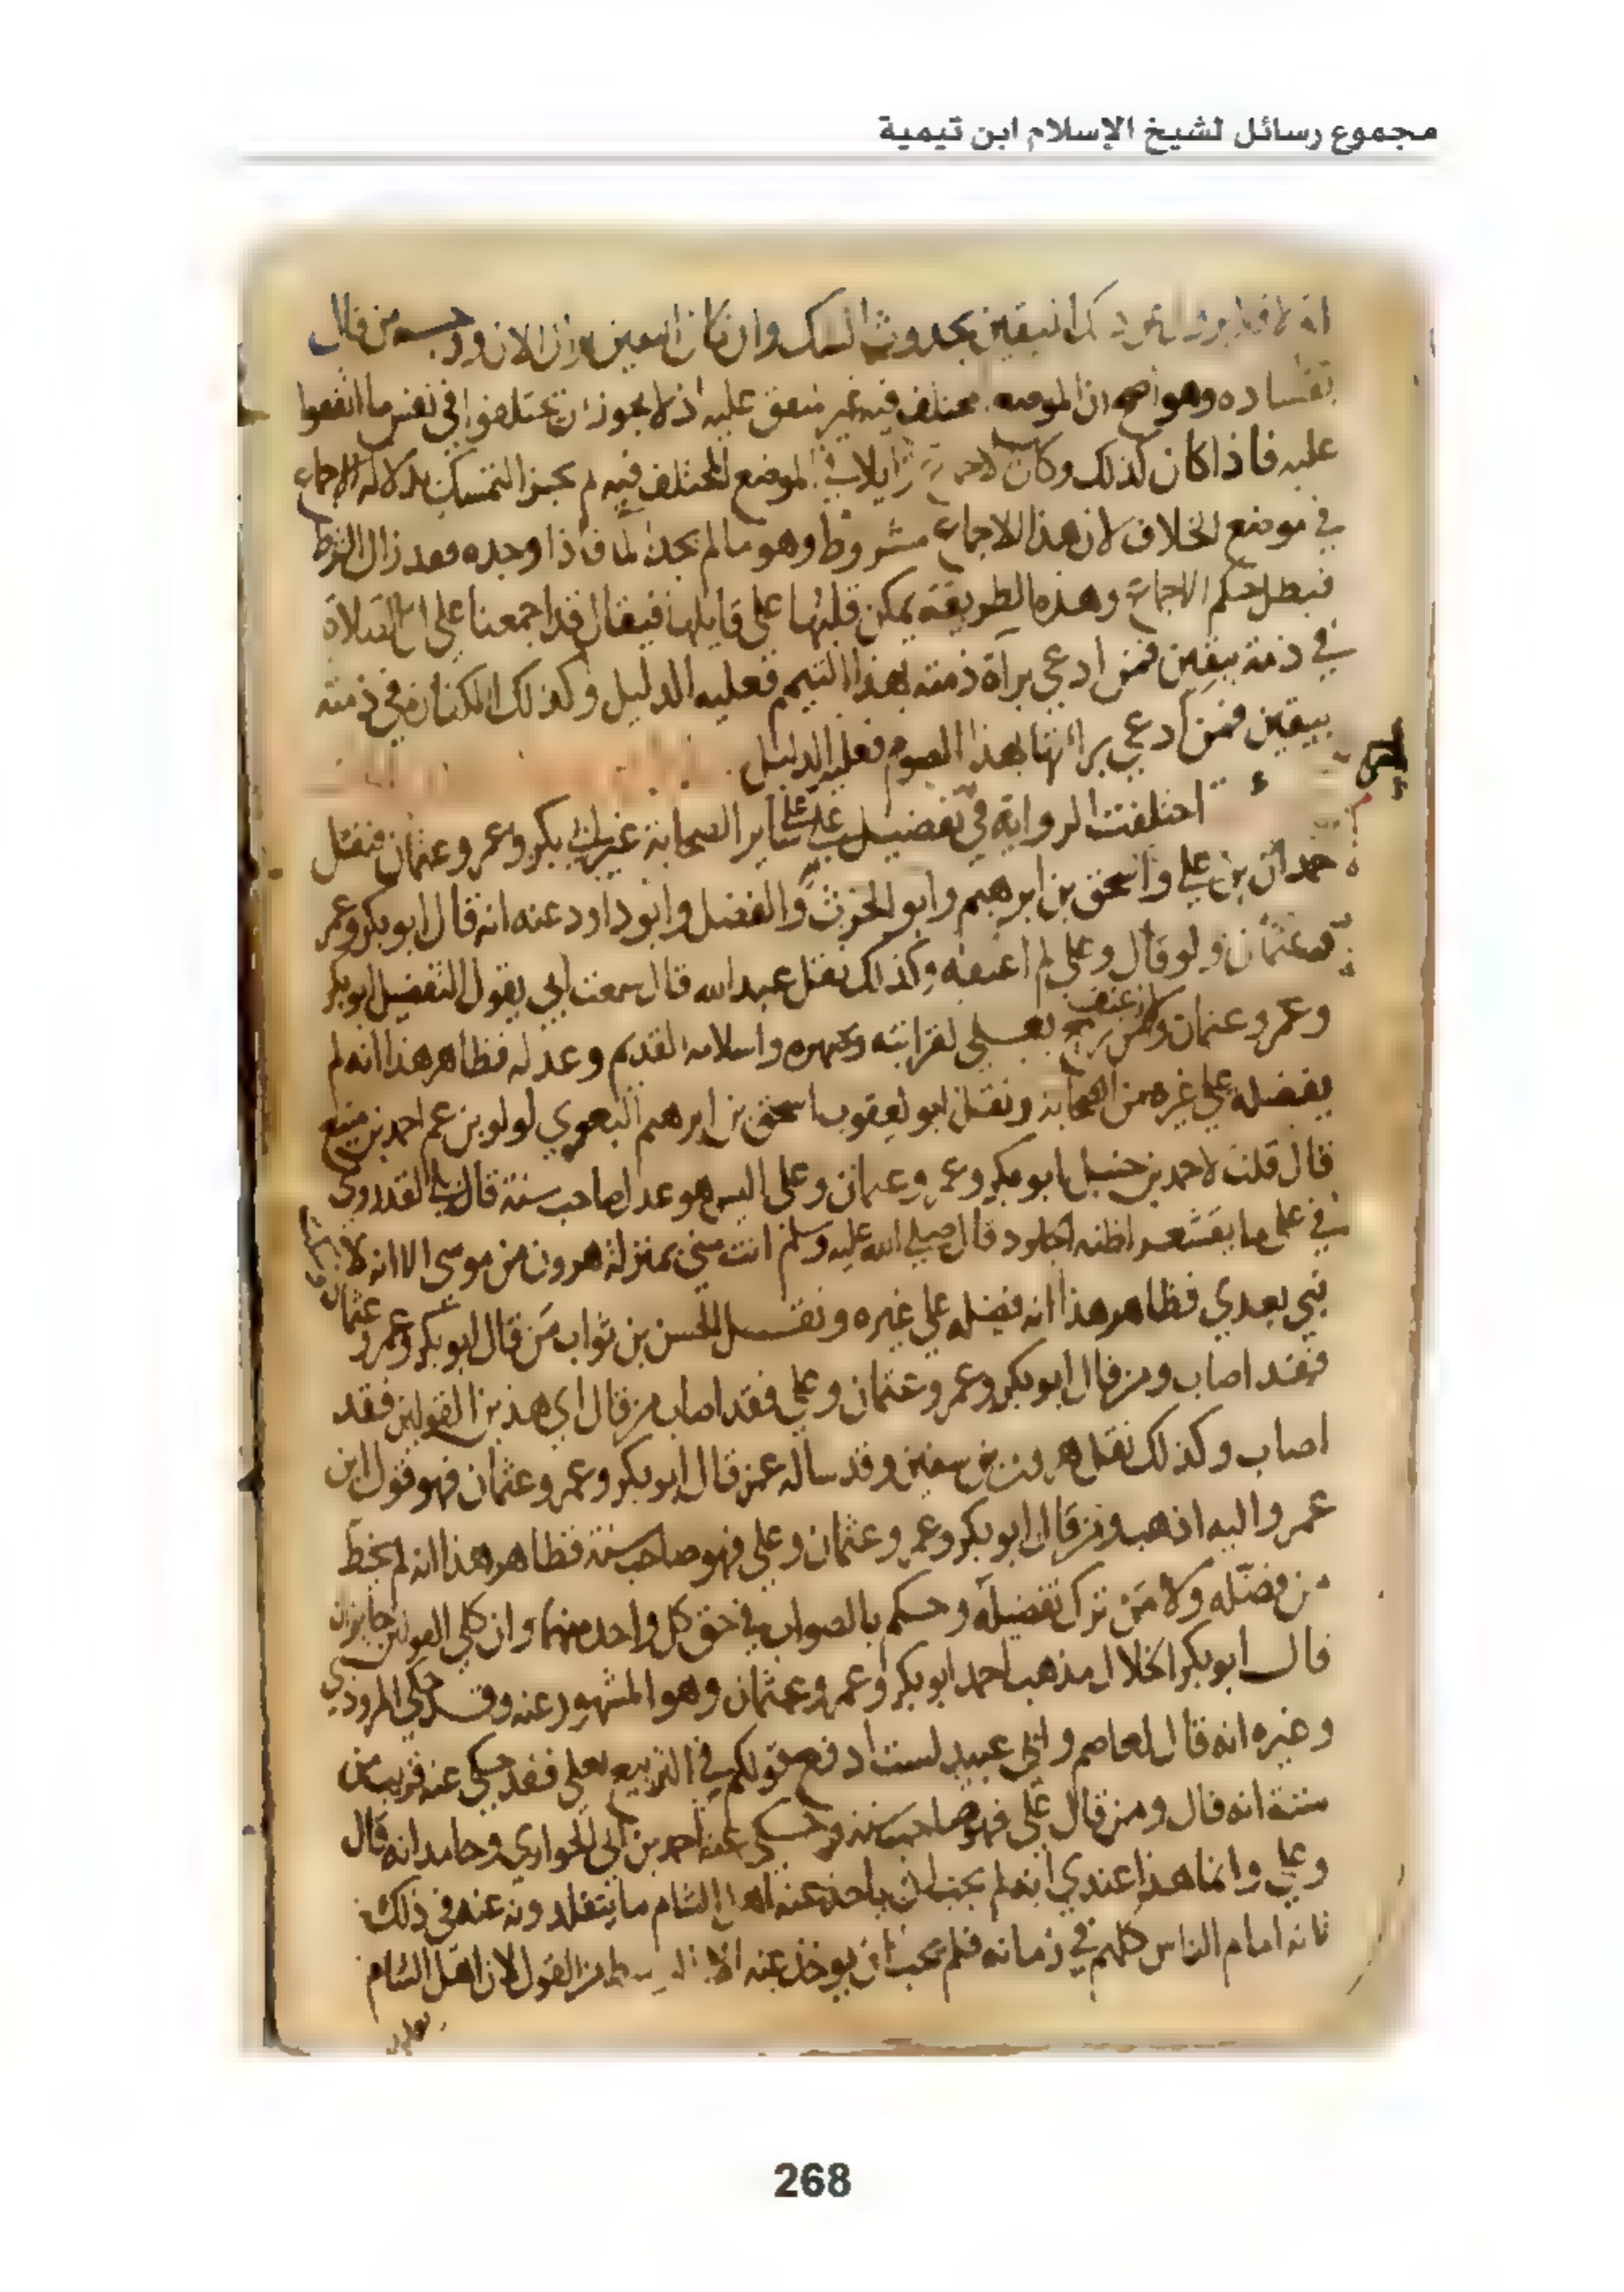 مجموع رسائل لشيخ الإسلام ابن تيمية
بحدوث الشك وان كان اليقين من قال
بفساده وهو اصح ان الموضع مختلف فيه غير متفق عليه اذ لا يجوز ان يختلفوا في نفس ما اتفقوا
عليه فاذا كان كذلك وكان الموضع المختلف فيه لم يجز التمسك بدلالة الاجماع
في موضع الخلاف لان هذا الاجماع مشروط وهو ما لم يجد الما فاذا وجده فقد زال الشرط
فبطل حكم الاجماع وهذه الطريقة يمكن قلبها على قايلها فيقال قد اجمعنا على ان الصلاة
في ذمته بيقين فمن ادعى برآة ذمته بهذا التيمم فعليه الدليل وكذلك الكفارة في ذمته
بيقين فمن ادعى برائتها بهذا الصوم فعليه الدليل
اختلفت الرواية في تفضيل علي على ساير الصحابة غير ابي بكر وعمر وعثمان فنقل
حمدان بن علي واسحق بن ابرهيم وابو الحرث والفضل وابو داود عنه انه قال ابو بكر وعمر
وعثمان ولو قال وعلي لم اعنفه وكذلك نقل عبد الله قال سمعت ابي يقول التفضيل ابو بكر
وعمر وعثمان بعلي لقرابته وصهره واسلامه القديم وعدله فظاهر هذا انه لم
يفضله على غيره من الصحابة ونقل ابو يعقوب اسحق بن ابرهيم البغوي لولو بن عم احمد بن منيع
قال قلت لاحمد بن حنبل ابو بكر وعمر وعثمان وعلي اليس هو عدل صاحب سنة قال بلى لقد روي
في علي ما يقشعر اظنه الجلود قال صلى الله عليه وسلم انت مني بمنزلة هرون من موسى الا انه لا
نبي بعدي فظاهر هذا انه فضله على غيره ونقل الحسن بن ثواب من قال ابو بكر وعمر وعثمان
فقد اصاب ومن قال ابو بكر وعمر وعثمان وعلي فقد اصاب من قال اي هذين القولين فقد
اصاب وكذلك نقل هرون بن سفين وقد ساله عمن قال ابو بكر وعمر وعثمان فهو قول ابن
عمر واليه اذهب ومن قال ابو بكر وعمر وعثمان وعلي فهو صاحب سنة فظاهر هذا انه لم يخط
من فضله ولا من ترك تفضيله وحكم بالصواب في حق كل واحد منهما وان كلي القولين جايزان
قال ابو بكر الخلال مذهب احمد ابو بكر وعمر وعثمان وهو المشهور عنه وقد حكى المروذي
وغيره انه قال لعاصم وابي عبيد لست ادفع قولكم في التربيع بعلي فقد حكى عنه قريب من
سنة انه قال ومن قال علي فهو صاحب سنة وحكى عنه احمد بن ابي الحواري وحامد انه قال
وعلي وانما هذا عندي انه لم يحب ان ياخذ عنه اهل الشام ما يتقلدونه عنه في ذلك
فانه امام الناس كلهم في زمانه فلم يحب ان يوخذ عنه الا من القول لان اهل الشام
268